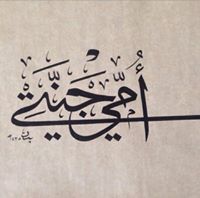 أُمّي جَنَّتي